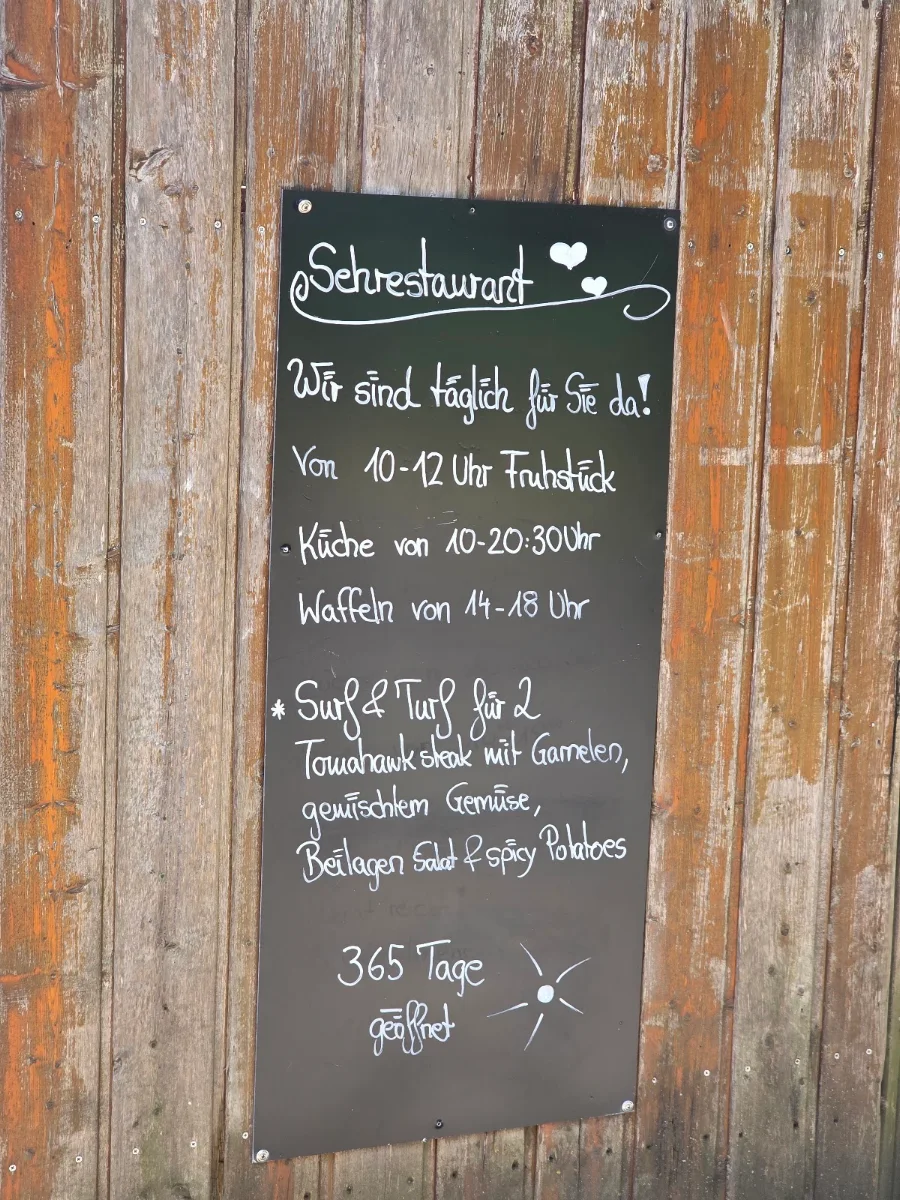 Sehrestaurant
Wir sind täglich für Sie da!
Von 10-12 Uhr Fruhstück
Küche von 10-20:30 Uhr
Waffeln von 14-18 Uhr
* Surf & Turf für 2
Tomahawksteak mit Garnelen,
gemischtem Gemüse,
Beilagen Salat & spicy Potatoes
365 Tage
geöffnet